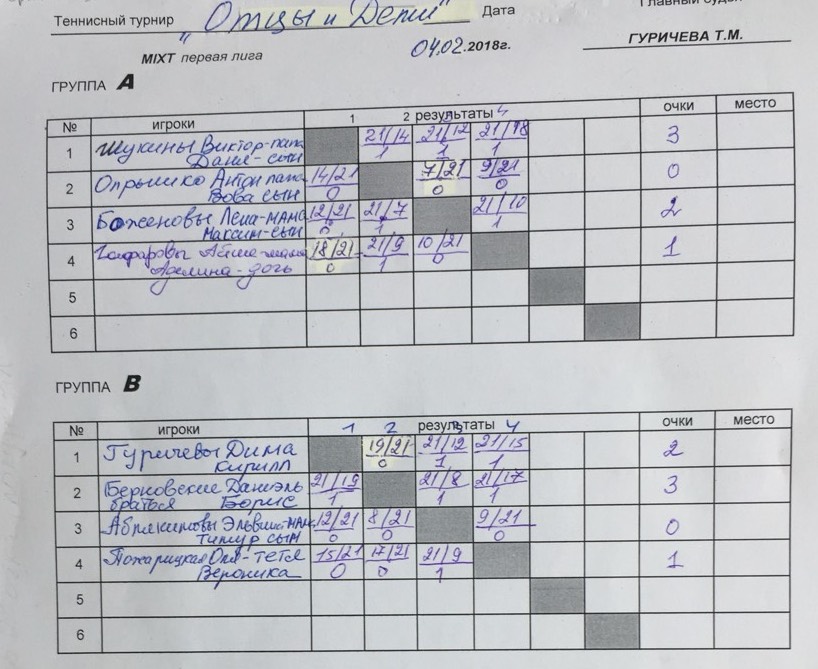 Теннисный турнир "Отцы и Дети" Дата Главный судья
MIXT первая лига 04.02.2018г. ГУРИЧЕВА Т.М.
ГРУППА A
№ игроки результаты очки место
1 2 3 4
1 Щукины Виктор-папа 21/14 21/12 21/18 3
Даня-сын 1 1 1
2 Опрышко Антон папа 14/21 7/21 9/21 0
Вова сын 0 0 0
3 Боженовы Лена-мама 12/21 21/7 21/10 2
Максим-сын 0 1 1
4 Гафаровы 18/21 21/9 10/21 1
Аделина-дочь 0 1 0
5
6
ГРУППА B
№ игроки результаты очки место
1 2 3 4
1 Гуричевы Дима 19/21 21/12 21/15 2
Кирилл 0 1 1
2 Берковские Даниэль 21/19 21/8 21/17 3
братья Борис 1 1 1
3 12/21 8/21 9/21 0
Тимур сын 0 0 0
4 Пожарицкая Оля-тётя 15/21 17/21 21/9 1
Вероника 0 0 1
5
6